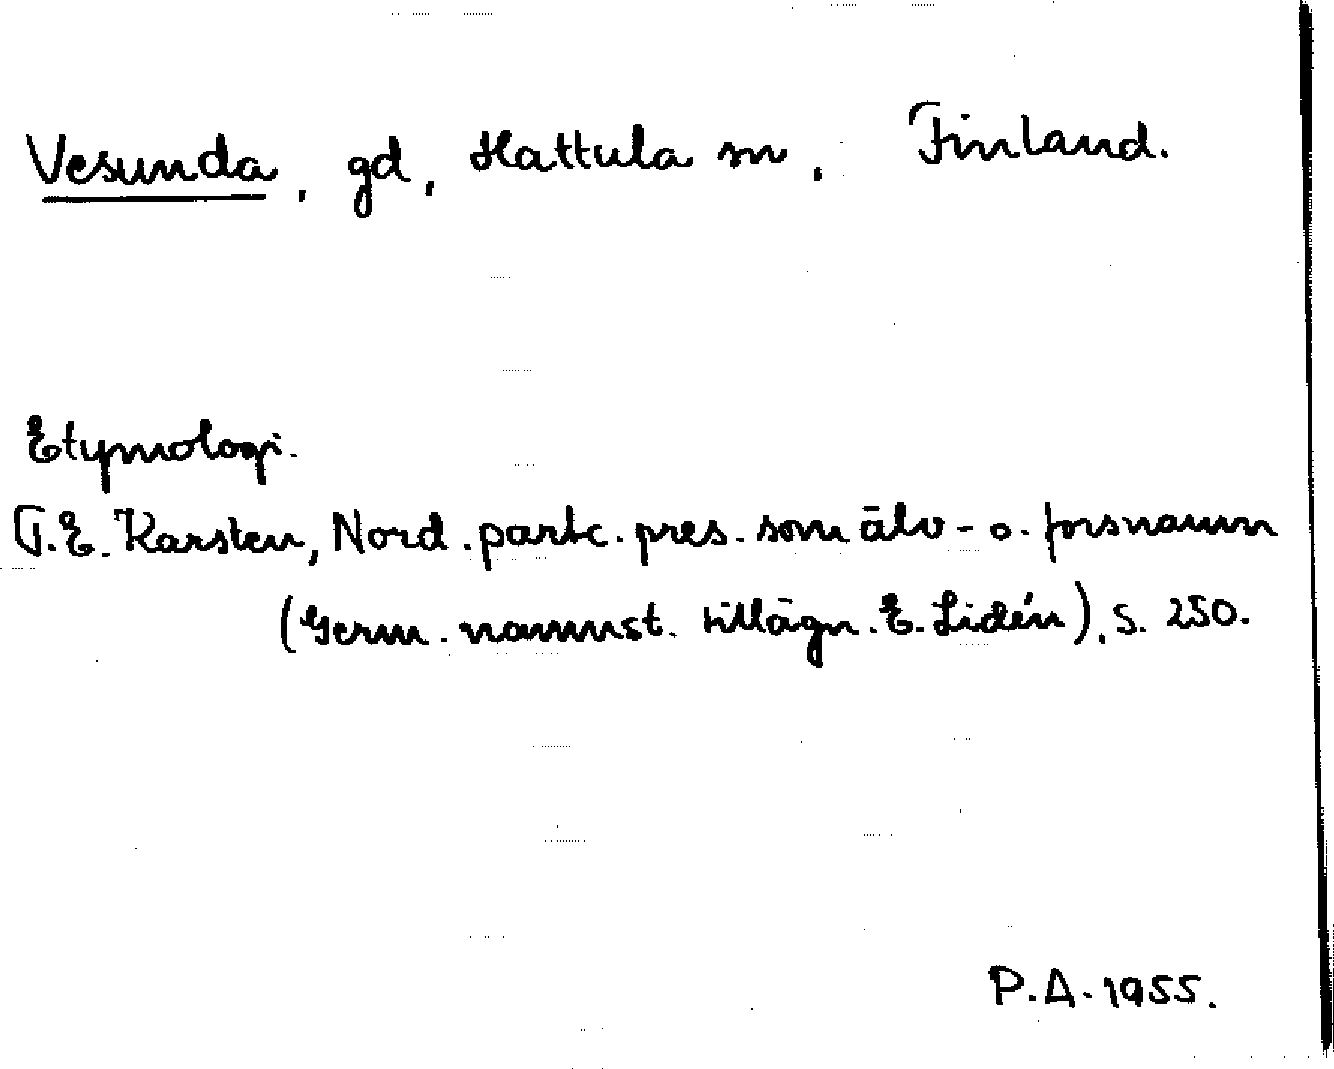 Vesunda, gd, Hattula sn, Finland.
Etymologi.
T.E. Karsten, Nord. partc. pres. som älv- o. forsnamn
(Germ. namnst. tillägn. E. Lidén), s. 250.
P.A. 1955.